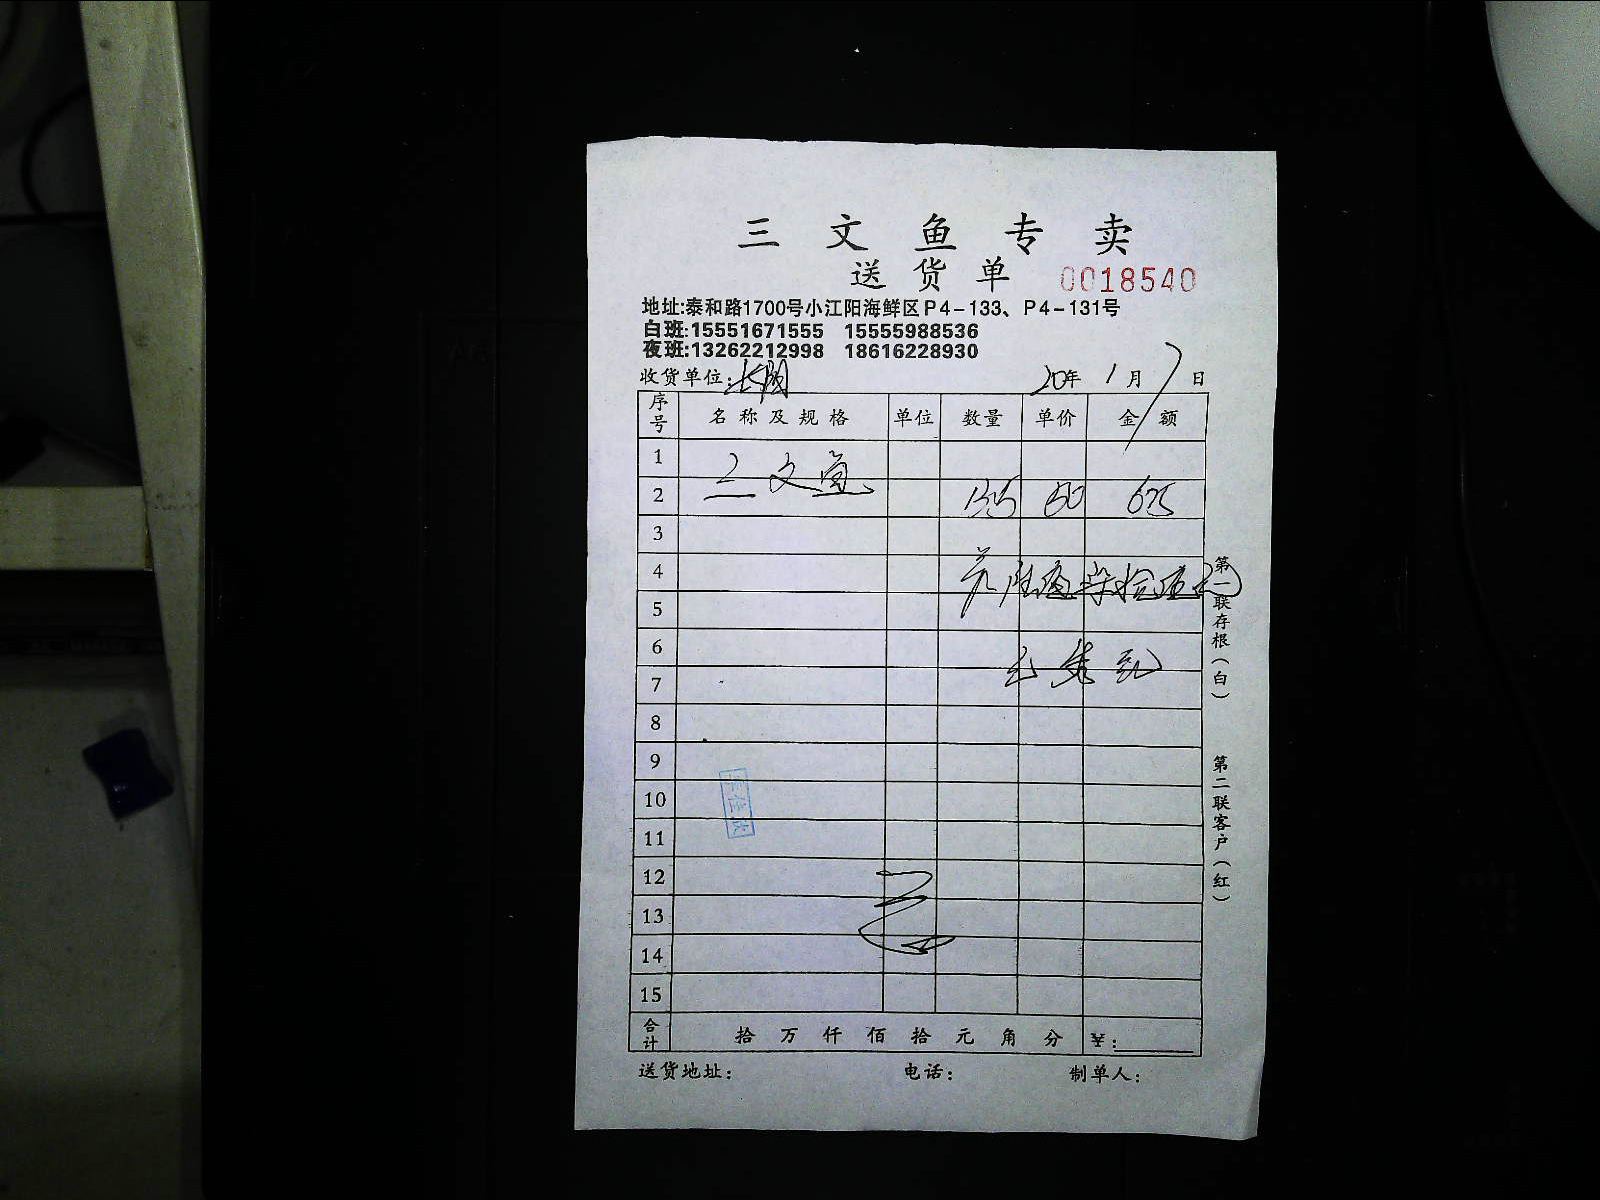 三文鱼专卖
送货单 0018540
地址:泰和路1700号小江阳海鲜区P4-133、P4-131号
白班:15551671555 15555988536
夜班:13262212998 18616228930
收货单位: 20年 1月 7日
序号 名称及规格 单位 数量 单价 金额
1
三文鱼
2 50 675
3
4
5
6
7
8
9
10
11
12
13
14
15
合计 拾万仟佰拾元角分 ¥:
送货地址: 电话: 制单人:
第一联存根(白)
第二联客户(红)